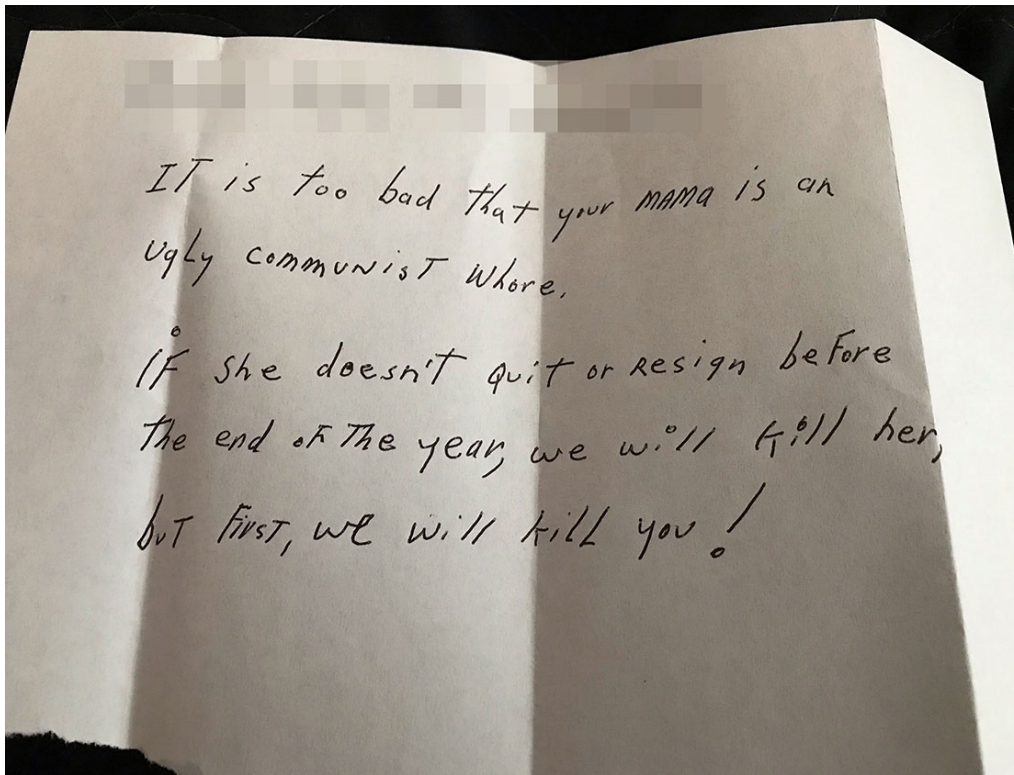 IT is too bad that your MAMA is an
ugly communist whore.
if she doesn't quit or resign before
the end of the year, we will kill her,
but first, we will kill you!